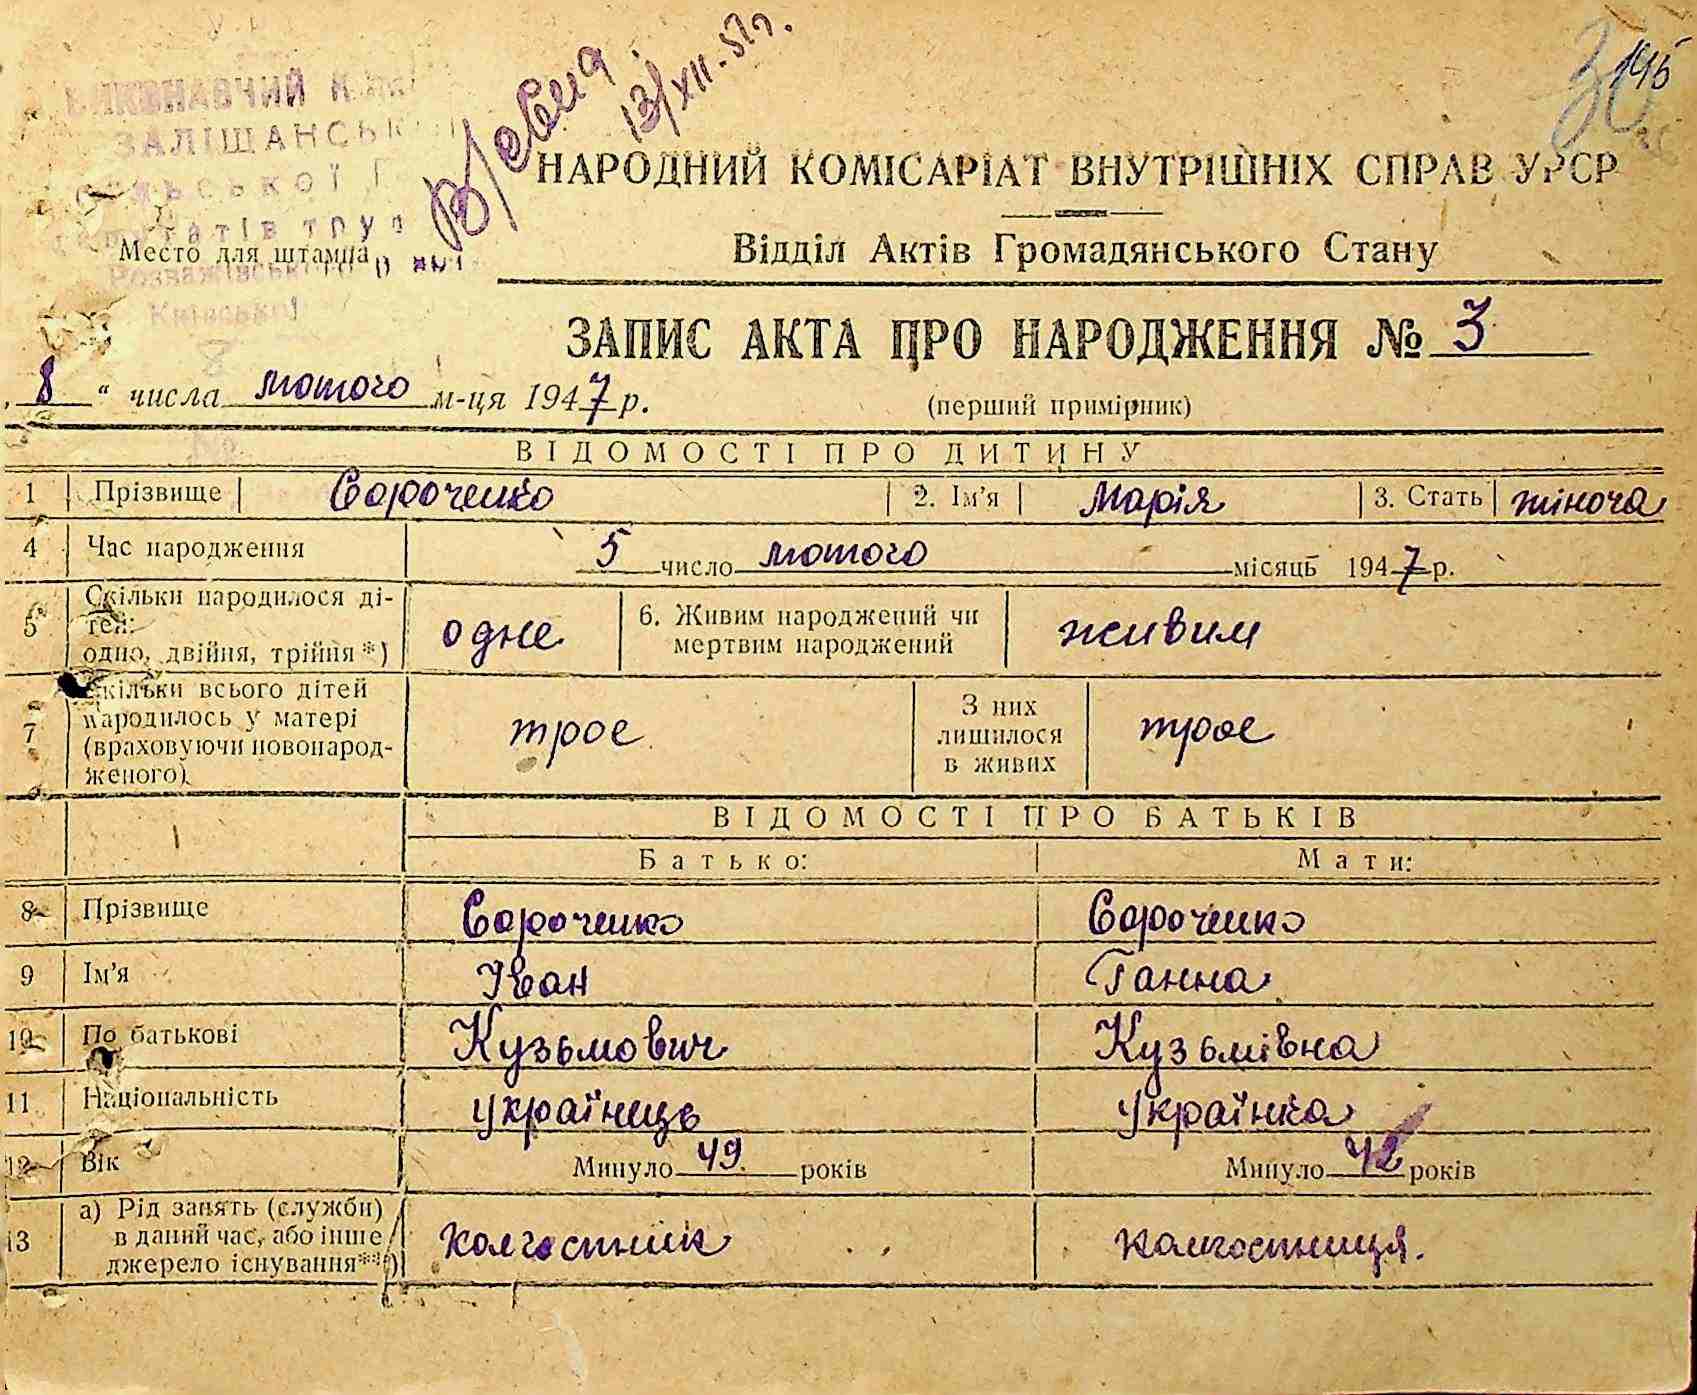 ЗАЛІЩАНСЬК
145
13/XII.57р.
НАРОДНИЙ КОМІСАРІАТ ВНУТРІШНІХ СПРАВ УРСР
Место для штампа
Відділ Актів Громадянського Стану
Київської
ЗАПИС АКТА ПРО НАРОДЖЕННЯ № 3
„ 8 “ числа лютого м-ця 1947 р.
(перший примірник)
ВІДОМОСТІ ПРО ДИТИНУ
1 Прізвище Сороченко 2. Ім'я Марія 3. Стать жіноча
4 Час народження 5 число лютого місяць 1947 р.
5 Скільки народилося ді-
тей:
одно, двійня, трійня *) одне 6. Живим народжений чи
мертвим народжений живим
7 Скільки всього дітей
народилось у матері
(враховуючи новонарод-
женого) троє З них
лишилося
в живих троє
ВІДОМОСТІ ПРО БАТЬКІВ
Батько: Мати:
8 Прізвище Сороченко Сороченко
9 Ім'я Іван Ганна
10 По батькові Кузьмович Кузьмівна
11 Національність українець українка
12 Вік Минуло 49 років Минуло 42 років
13 а) Рід занять (служби)
в даний час, або інше
джерело існування**) колгостник колгостниця.